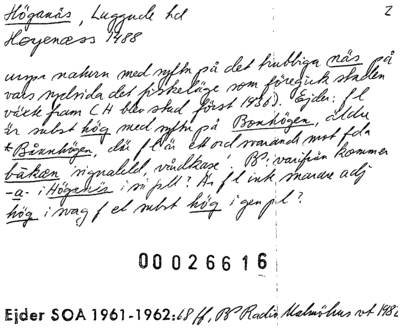 Höganäs, Luggude hd 2
Høyenæss 1488
urspr naturn med syftn på det trubbiga näs på
vars nordsida det fiskeläge som föregick staden
växt fram (H blev stad först 1936). Ejder: fl
är subst hög med syftn på Bonhögen, äldre
*Båknhögen, där fl är ett ord svarande mot fda
bakæn 'signaleld, vårdkase'. Bᴾ: varifrån kommer
-a- i Höganäs i så fall? Är fl ink snarare adj
hög i svag f el subst hög i gen pl?
00026616
Ejder SOA 1961-1962:68 ff, Bᴾ Radio Malmöhus vt 1982